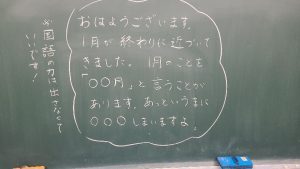 おはようございます。
1月が終わりに近づいて
きました。1月のことを
「○○月」と言うことが
あります。あっというまに
○○○しまいますよ。
※国語の力は出さなくて
いいです!